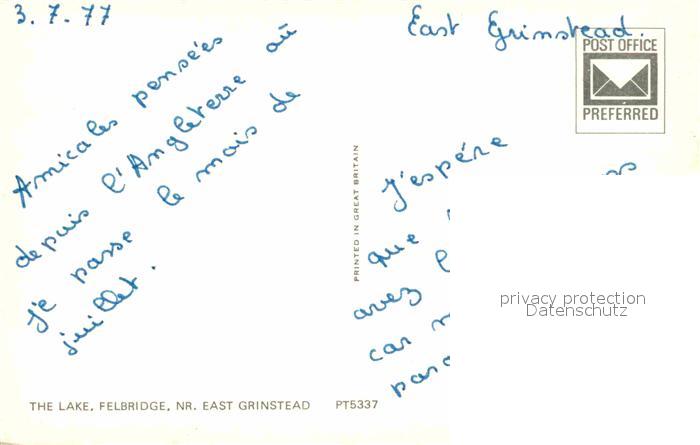 3.7.77
East Grinstead.
POST OFFICE
PREFERRED
Amicales pensées
depuis l'Angleterre où
je passe le mois de
juillet.
PRINTED IN GREAT BRITAIN
J'espère
que
avez
car
privacy protection
Datenschutz
THE LAKE, FELBRIDGE, NR. EAST GRINSTEAD PT5337